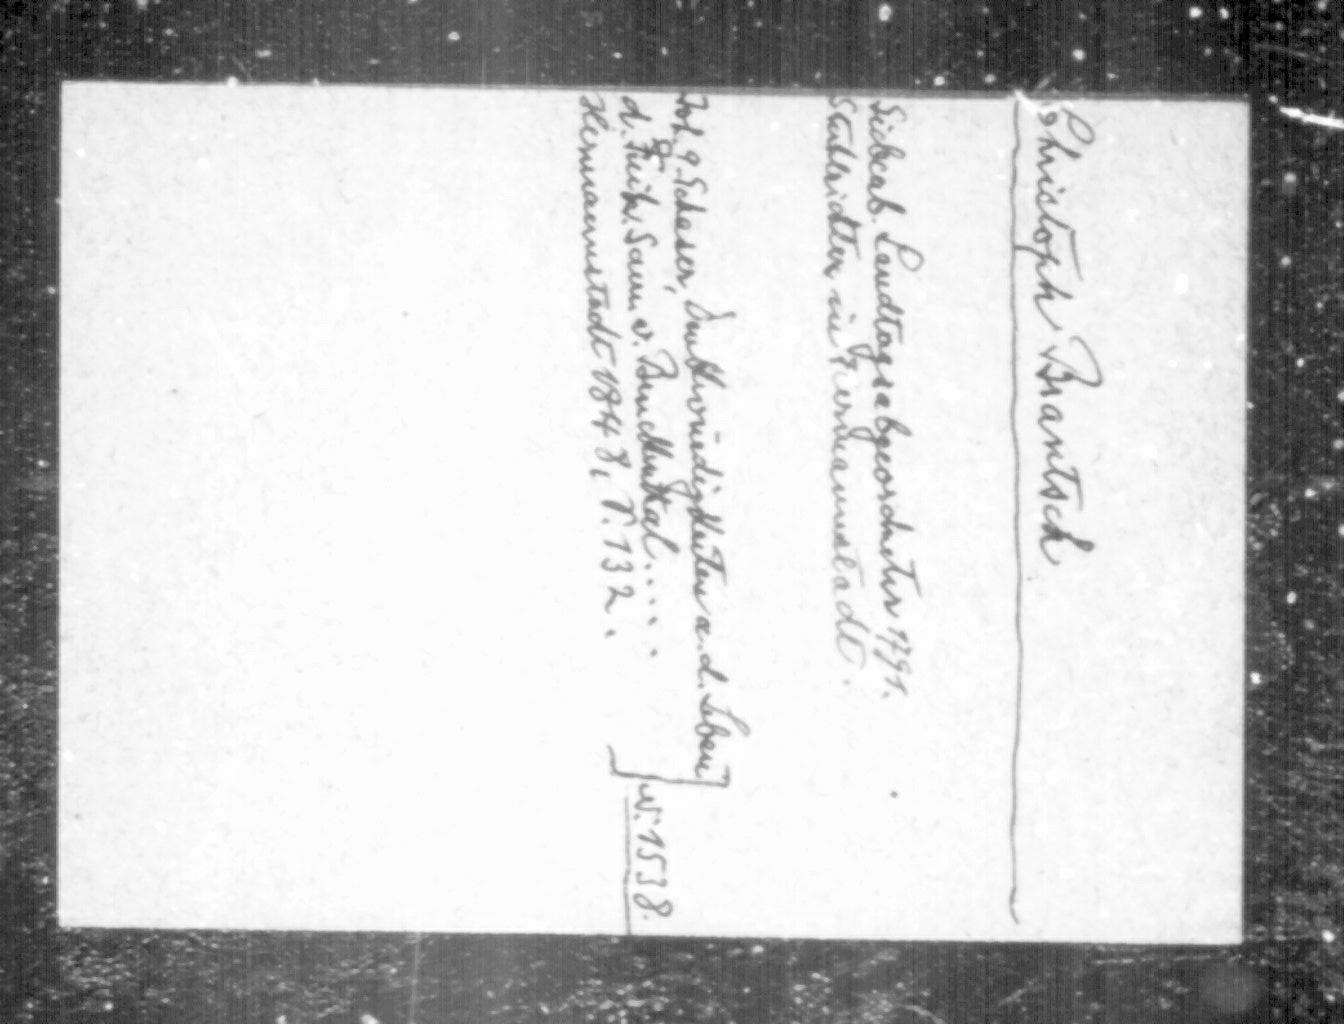 Christoph Brantsch
Siebenb. Landtagsabgeordneter 1791.
Stadtrichter in Hermannstadt.
Joh. G. Schaser, Denkwürdigkeiten a. d. Leben
d. Freih. Sam. v. Bruckenthal.....
Hermannstadt 1848, S. 132.
W. 1538.